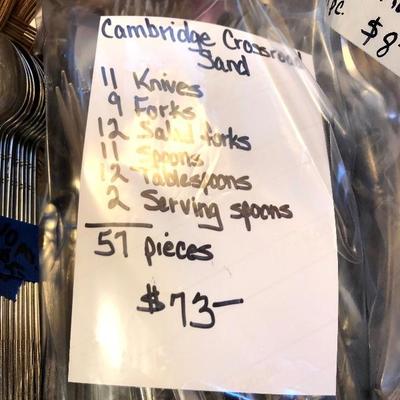 Cambridge Crossroad
Sand
11 Knives
9 Forks
12 Salad forks
11 Spoons
12 Tablespoons
2 Serving spoons
57 pieces
$73-
pc.
$8